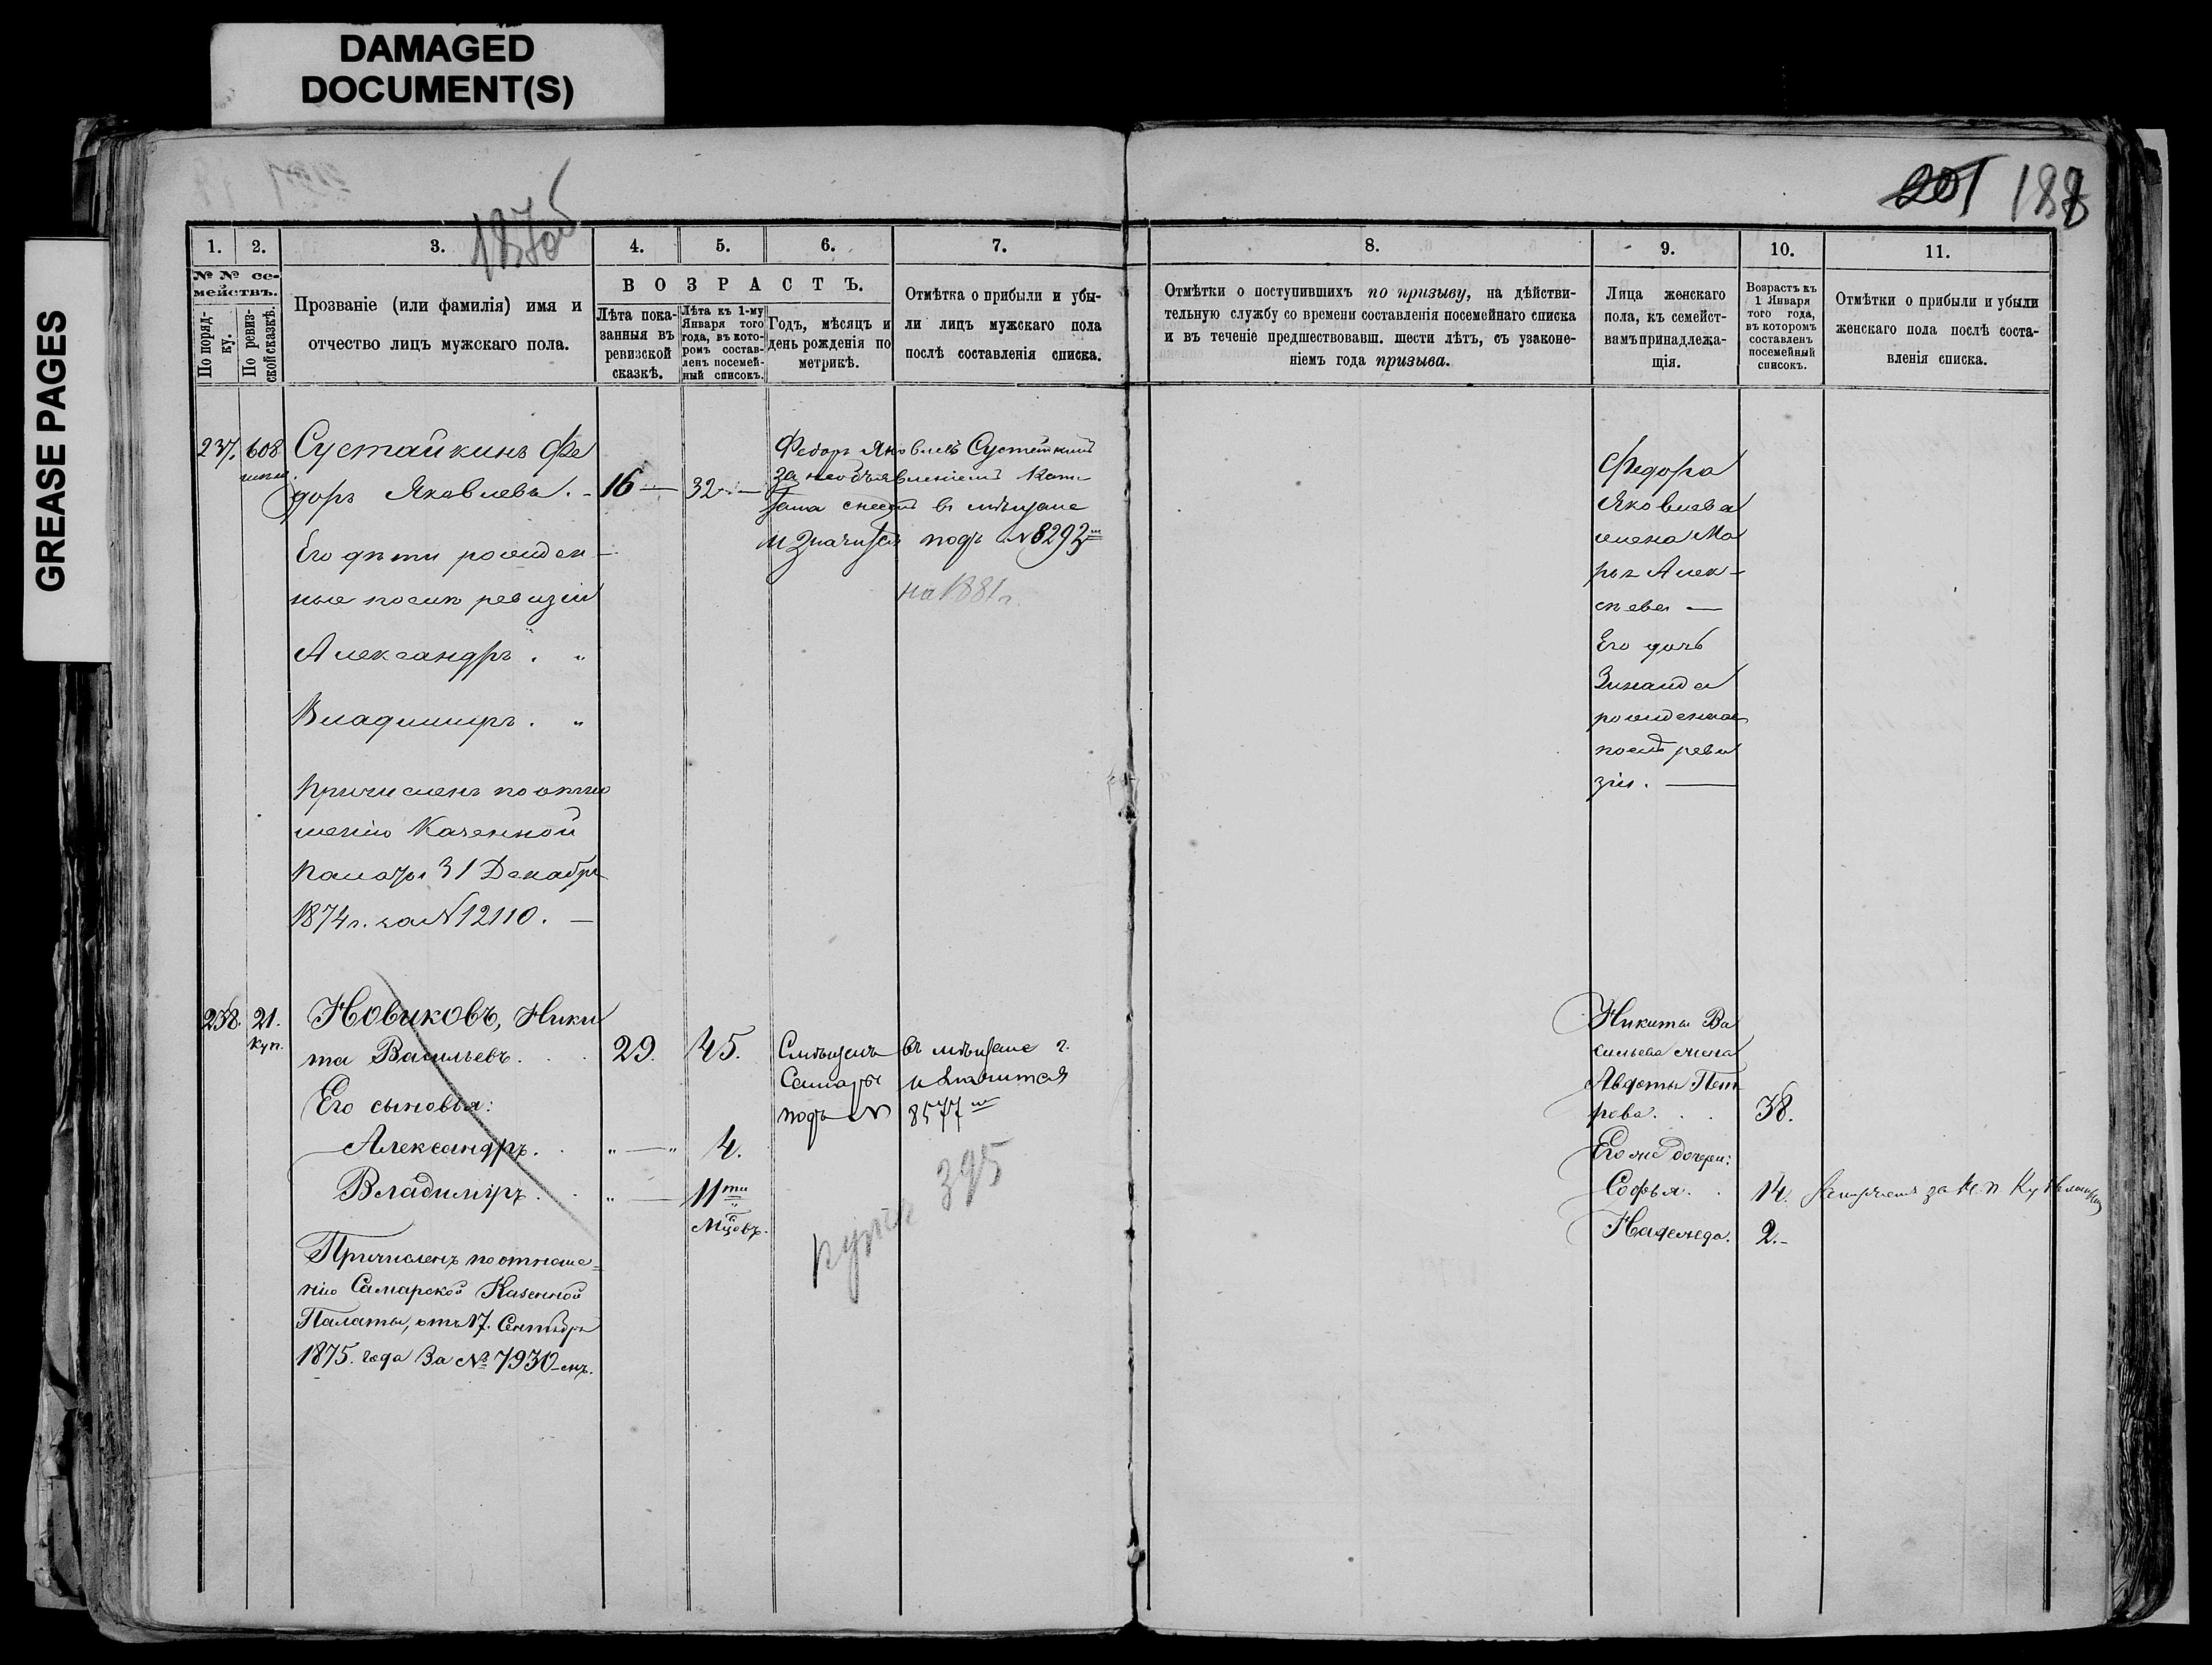 DAMAGED
DOCUMENT(S)
GREASE PAGES
1875
201 188
1.
2.
3.
4.
5.
6.
7.
8.
9.
10.
11.
№ № се-
мействъ.
По поряд-
ку.
По ревиз-
ской сказкѣ.
Прозваніе (или фамилія) имя и
отчество лицъ мужскаго пола.
ВОЗРАСТЪ.
Лѣта пока-
занныя въ
ревизской
сказкѣ.
Лѣта къ 1-му
Января того
года, въ кото-
ромъ состав-
ленъ посемей-
ный списокъ.
Годъ, мѣсяцъ и
день рожденія по
метрикѣ.
Отмѣтка о прибыли и убы-
ли лицъ мужскаго пола
послѣ составленія списка.
Отмѣтки о поступившихъ по призыву, на дѣйстви-
тельную службу со времени составленія посемейнаго списка
и въ теченіе предшествовавш. шести лѣтъ, съ узаконе-
ніемъ года призыва.
Лица женскаго
пола, къ семейст-
вамъ принадлежа-
щія.
Возрастъ къ
1 Января
того года,
въ которомъ
составленъ
посемейный
списокъ.
Отмѣтки о прибыли и убыли
женскаго пола послѣ соста-
вленія списка.
237. 608
Сустайкинъ Фе
доръ Яковлевъ. - 16 — 32 —
Его дѣти рожден-
ные послѣ ревизіи
Александръ . "
Владимиръ . "
Причисленъ по отно
шенію Казенной
Палаты 31 Декабря
1874 г. за N 12110. —
Федоръ Яковлевъ Сустайкинъ
за необъявленіемъ Капи
тала снесенъ въ мѣщане
и значится подъ N 8293
на 1881 г.
Федора
Яковлева
жена Ма
рья Алек-
сѣева —
Его дочь
Зинаида
рожденная
послѣ реви
зіи. —
238. 21.
Куп.
Новиковъ, Ники
та Васильевъ. . . 29. 45.
Его сыновья:
Александръ. . " — " 4.
Владиміръ. . " — 11ти
Мцовъ.
Причисленъ по отноше-
нію Самарской Казенной
Палаты, отъ 17. Сентября
1875. года За № 7930-мъ.
въ мѣщане г.
Самары и значится
подъ N 8577
купч 395
Никиты Ва
сильева жена
Авдотья Пет
рова. . . 38.
Его же дочери:
Софья. . 14.
Надежда. 2.-